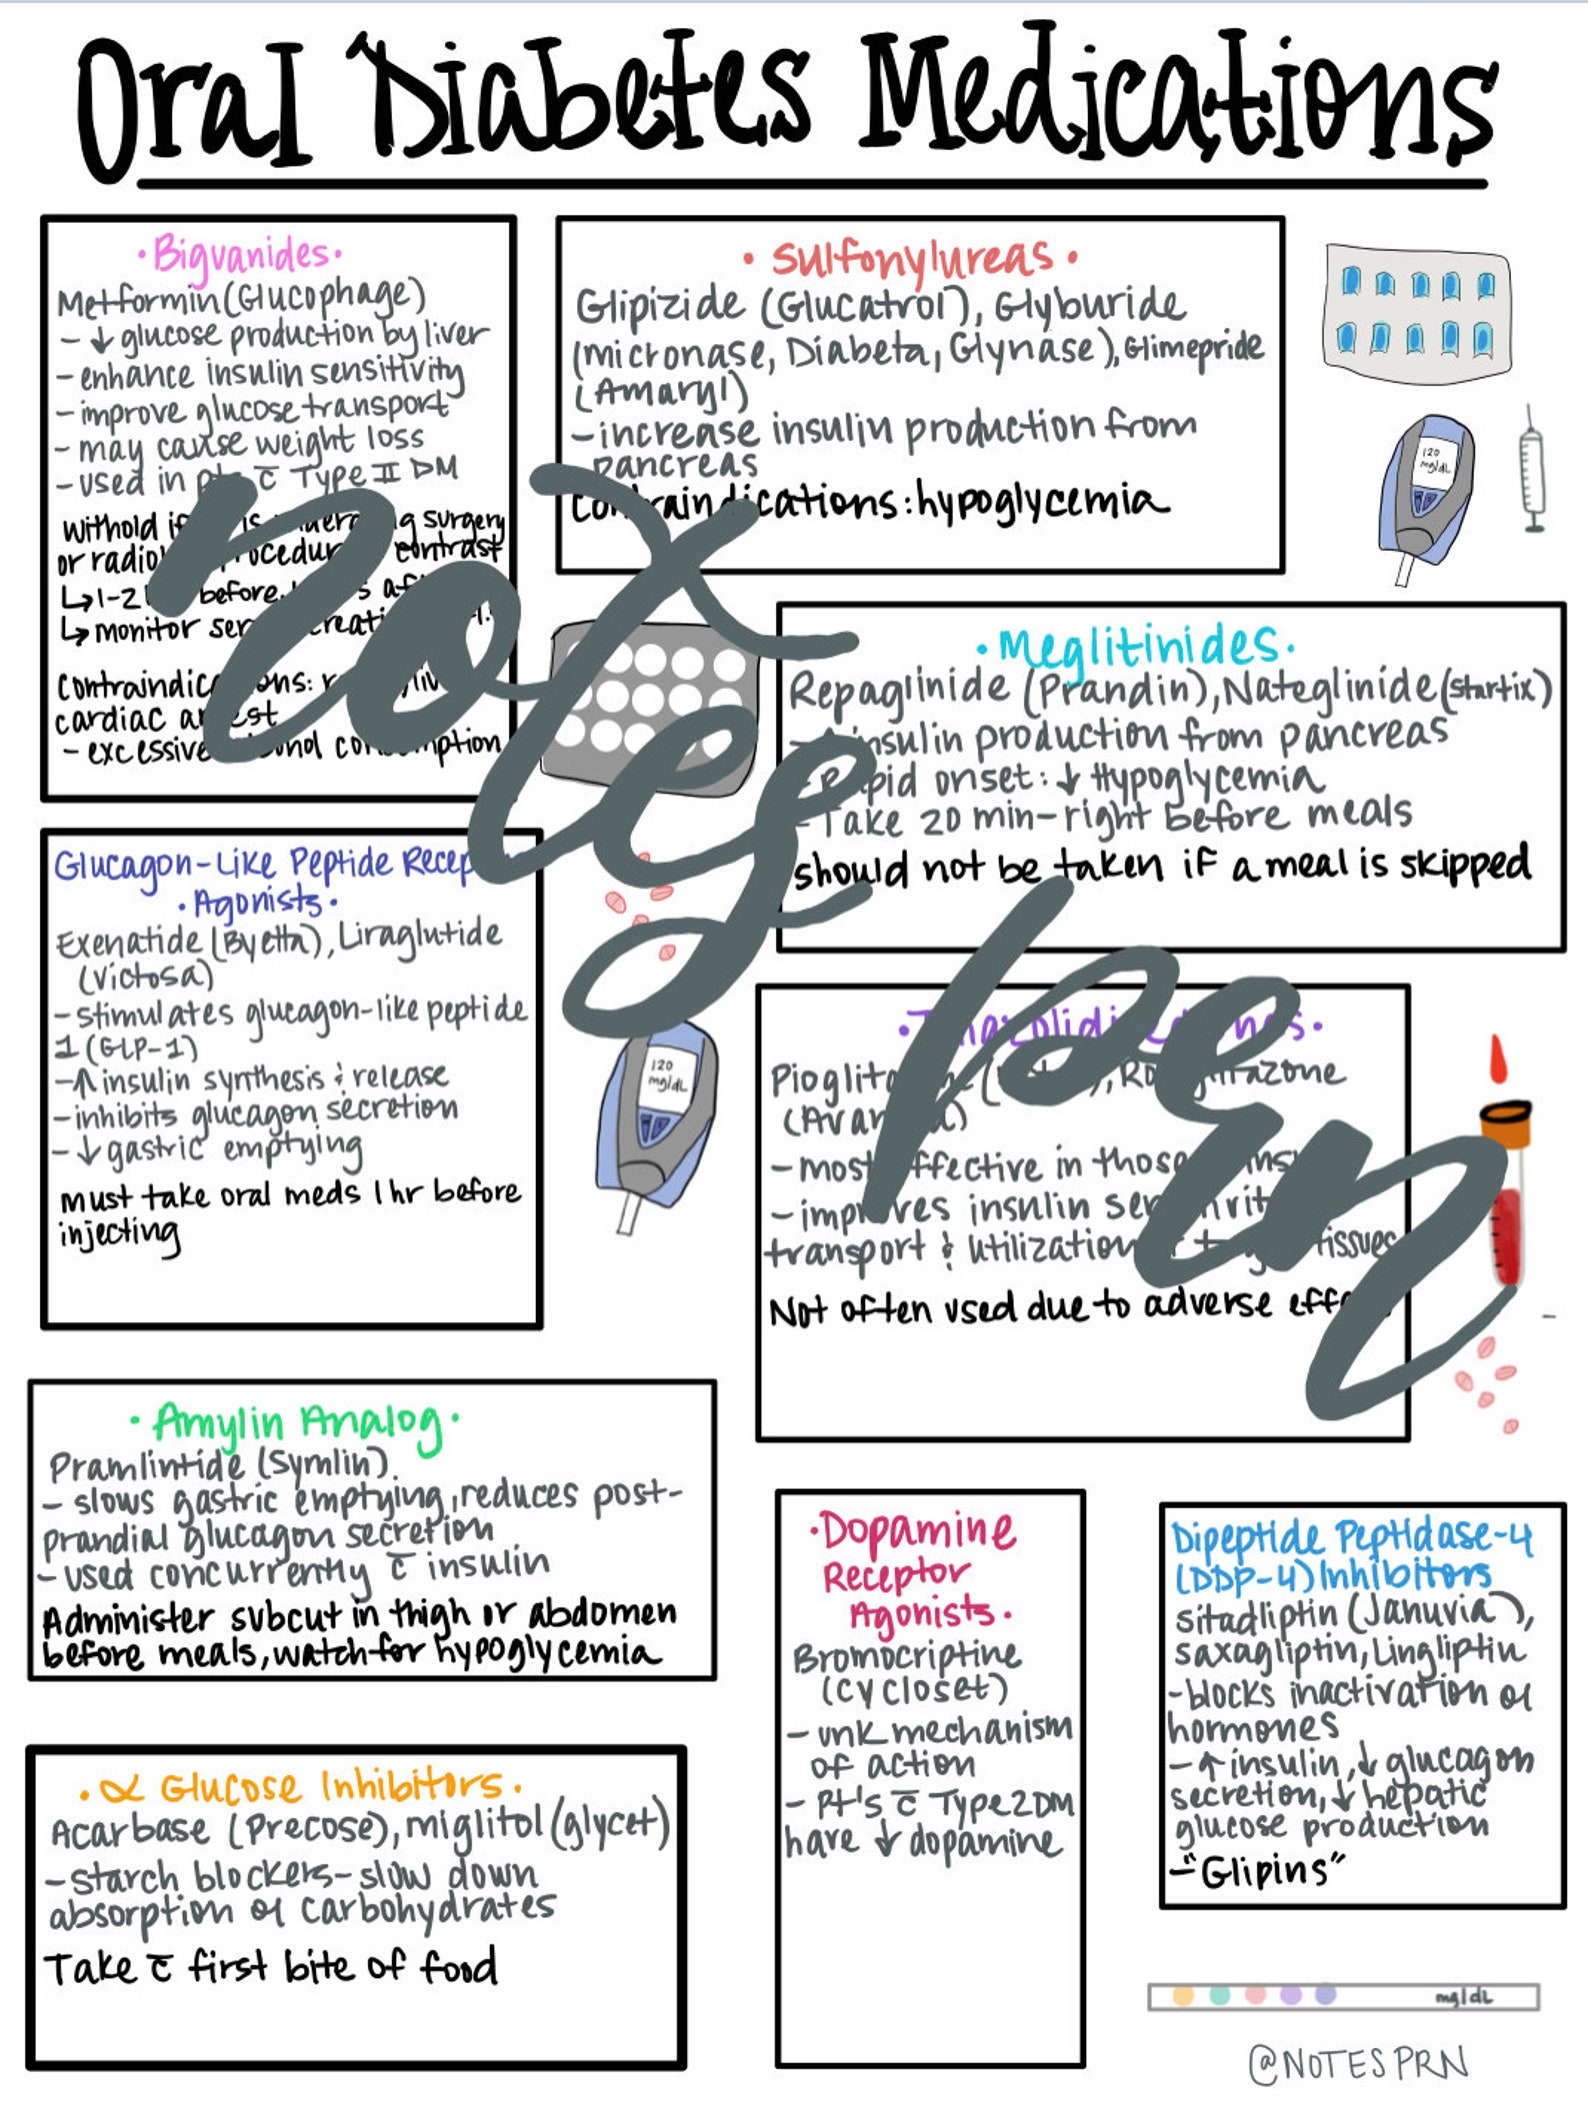 Oral Diabetes Medications
·Biguanides·
Metformin (Glucophage)
- ↓ glucose production by liver
- enhance insulin sensitivity
- improve glucose transport
- may cause weight loss
- used in c̅ Type II DM
withold if is surgery
or contrast
↳ 1-2 before
↳ monitor
contraindications:
cardiac arrest
- excessive consumption
· Sulfonylureas ·
Glipizide (Glucatrol), Glyburide
(micronase, Diabeta, Glynase), Glimepride
(Amaryl)
- increase insulin production from
pancreas
contraindications: hypoglycemia
·Meglitinides·
Repaglinide (Prandin), Nateglinide (Startix)
insulin production from pancreas
- Rapid onset: ↓ Hypoglycemia
- Take 20 min-right before meals
should not be taken if a meal is skipped
Glucagon-Like Peptide
· Agonists ·
Exenatide (Byetta), Liraglutide
(Victosa)
- stimulates glucagon-like peptide
1 (GLP-1)
- ↑ insulin synthesis & release
- inhibits glucagon secretion
- ↓ gastric emptying
must take oral meds 1 hr before
injecting
120
mg/dL
120
mg/dL
(Avandia)
- most effective in those
- improves insulin
transport & utilization tissues
Not often used due to adverse
· Amylin Analog ·
Pramlintide (Symlin)
- slows gastric emptying, reduces post-
prandial glucagon secretion
- used concurrently c̅ insulin
Administer subcut in thigh or abdomen
before meals, watch for hypoglycemia
· ∝ Glucose Inhibitors ·
Acarbase (Precose), miglitol (glycet)
- starch blockers - slow down
absorption of carbohydrates
Take c̅ first bite of food
·Dopamine
Receptor
Agonists·
Bromocriptine
(cycloset)
- unk mechanism
of action
- Pt's c̅ Type 2 DM
have ↓ dopamine
Dipeptide Peptidase-4
(DDP-4) Inhibitors
sitadliptin (Januvia),
saxagliptin, Lingliptin
- blocks inactivation of
hormones
- ↑ insulin, ↓ glucagon
secretion, ↓ hepatic
glucose production
- "Glipins"
mg/dL
@NOTESPRN
notes prn